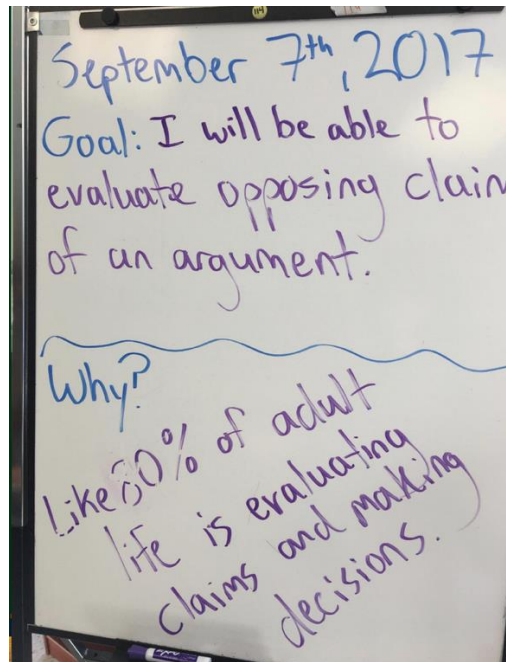 114
September 7th, 2017
Goal: I will be able to
evaluate opposing claim
of an argument.
Why?
Like of adult
life is evaluating
claims and making
decisions.